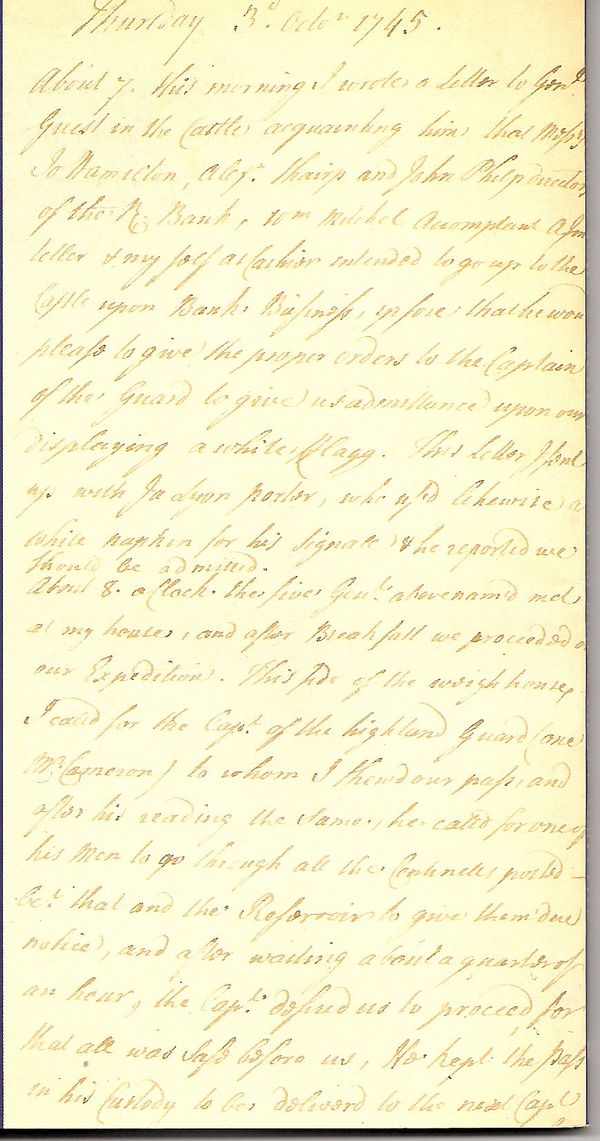 Thursday 3d. Octor 1745.
About 7. this morning I wrote a letter to Genl.
Guest in the Castle acquainting him that Messrs
Jo Hamilton, Alexr. Shairp and John Philp directors
of the R. Bank, Wm Mitchel Accomptant A Inn
teller & my self as Cashier intended to go up to the
Castle upon Bank Business, & that he wou
please to give the proper orders to the Captain
of the Guard to give us admittance upon our
displaying a white fflagg. This letter I sent
up with Ja Lyon porter, who us'd likewise a
white napkin for his signale & he reported we
should be admitted.
About 8. a Clock the five Gentn. abovenamed met
at my house, and after Breakfast we proceeded o
our Expedition. This side of the weigh house,
I called for the Capt. of the highland Guard (one
Mr. Cameron) to whom I shewd our pass, and
after his reading the same, he called for one of
his Men to go through all the Centinels posted
bet. that and the Reservoir to give them due
notice, and after waiting about a quarter of
an hour, the Capt. desired us to proceed, for
that all was safe before us, He kept the pass
in his Custody to be deliverd to the next Capt.